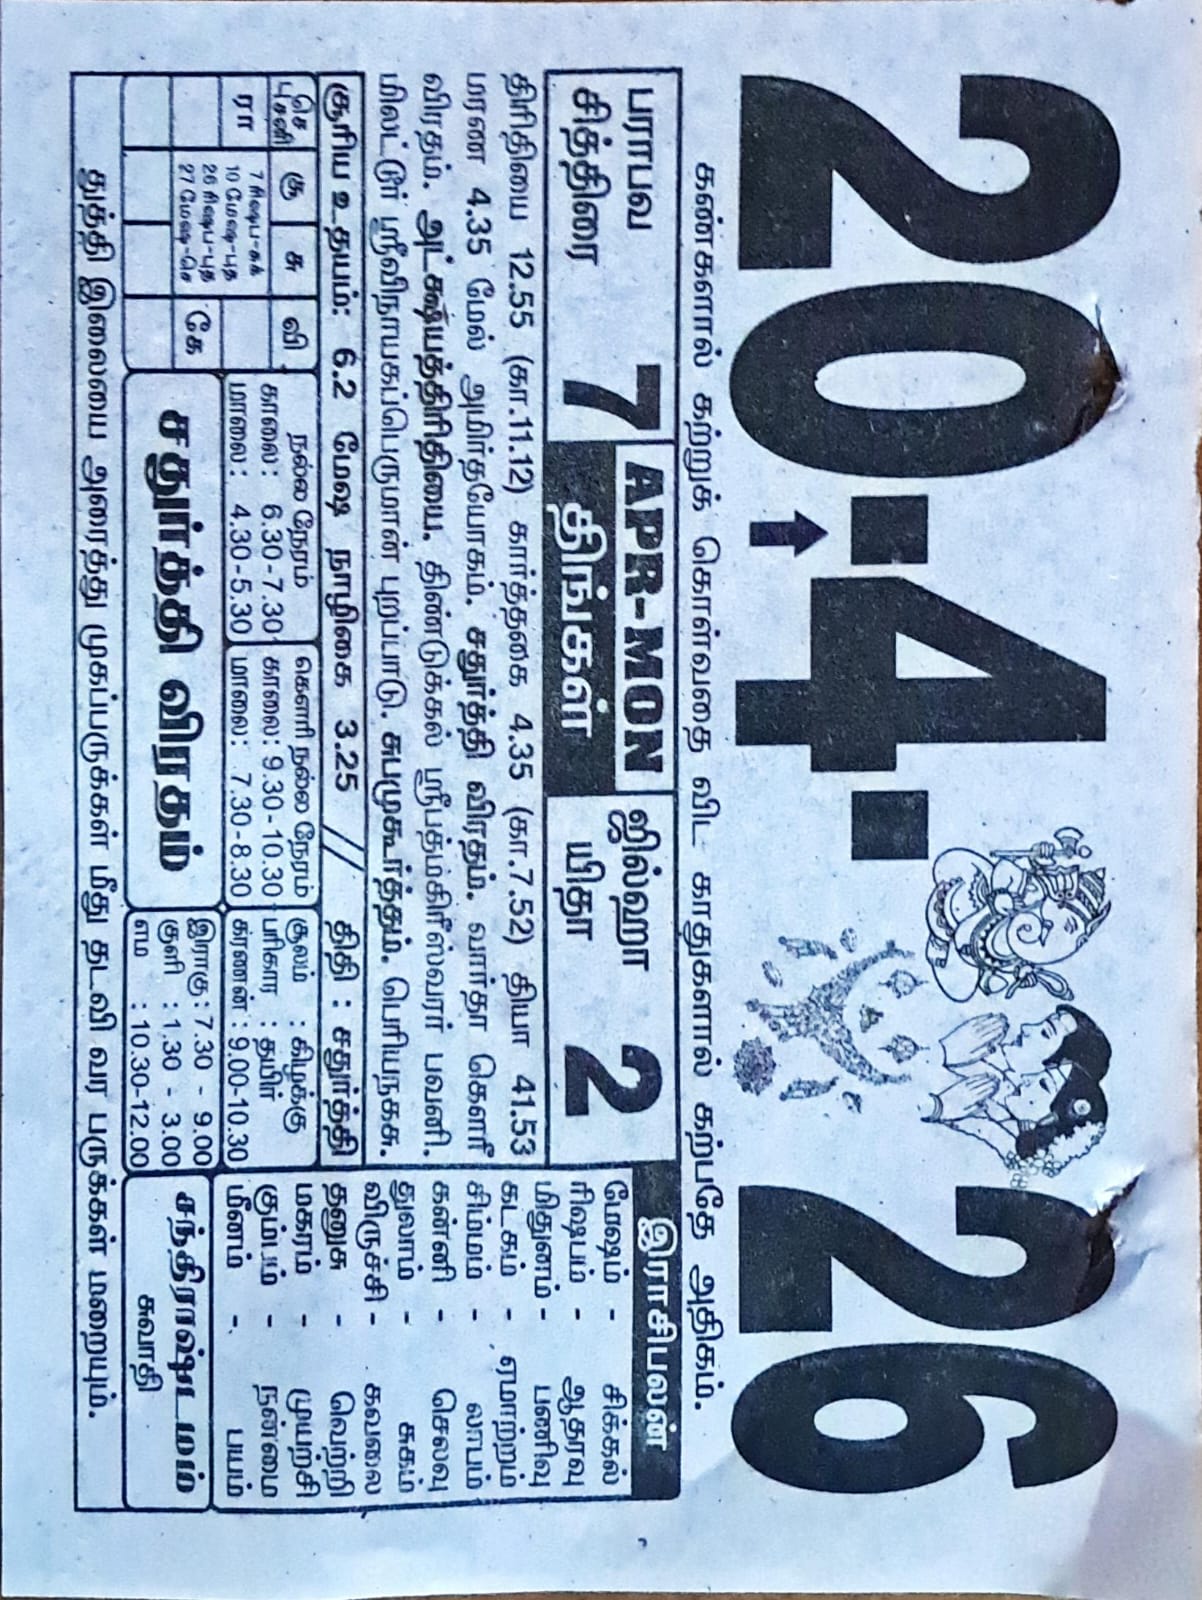 20.4.26
கண்களால் கற்றுக் கொள்வதை விட காதுகளால் கற்பதே அதிகம்.
பராபவ
சித்திரை 7
APR-MON
திங்கள்
ஜில்ஹா
யிதா 2
திரிதியை 12.55 (கா.11.12) கார்த்தகை 4.35 (கா.7.52) தியா 41.53
மரண 4.35 மேல் அமிர்தயோகம். சதுர்த்தி விரதம். வார்தா கௌரி
விரதம். அட்சஷயத்திரிதியை. திண்டுக்கல் ஸ்ரீபத்மகிரீஸ்வரர் பவனி.
மிலட்டூர் ஸ்ரீவிநாயகப்பெருமான் புறப்பாடு. சுபமுகூர்த்தம். பெரியநகசு.
சூரிய உதயம்: 6.2 மேஷ நாழிகை 3.25 // திதி : சதுர்த்தி
செ
புசனி கு சு வி
ரா
7 ரிஷப-சுக்
10 மேஷ-புத
26 ரிஷப-புத
27 மேஷ-செ
கே
நல்ல நேரம்
காலை: 6.30-7.30
மாலை: 4.30-5.30
கௌரி நல்ல நேரம்
காலை: 9.30-10.30
மாலை: 7.30-8.30
சூலம் : கிழக்கு
பரிகார : தயிர்
கரணன் : 9.00-10.30
சதுர்த்தி விரதம்
இராகு: 7.30 - 9.00
குளி : 1.30 - 3.00
எம : 10.30-12.00
இராசிபலன்
மேஷம் - சிக்கல்
ரிஷபம் - ஆதரவு
மிதுனம் - பணிவு
கடகம் - ஏமாற்றம்
சிம்மம் - லாபம்
கன்னி - செலவு
துலாம் - சுகம்
விருச்சி - கவலை
தனுசு - வெற்றி
மகரம் - முயற்சி
கும்பம் - நன்மை
மீனம் - பயம்
சந்திராஷ்டமம்
சுவாதி
துத்தி இலையை அரைத்து முகப்பருக்கள் மீது தடவி வர பருக்கள் மறையும்.